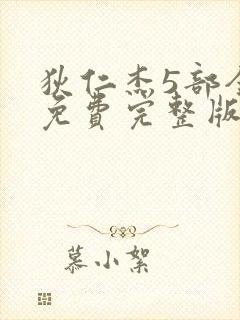 狄仁杰5部
免费完整版
慕小絮